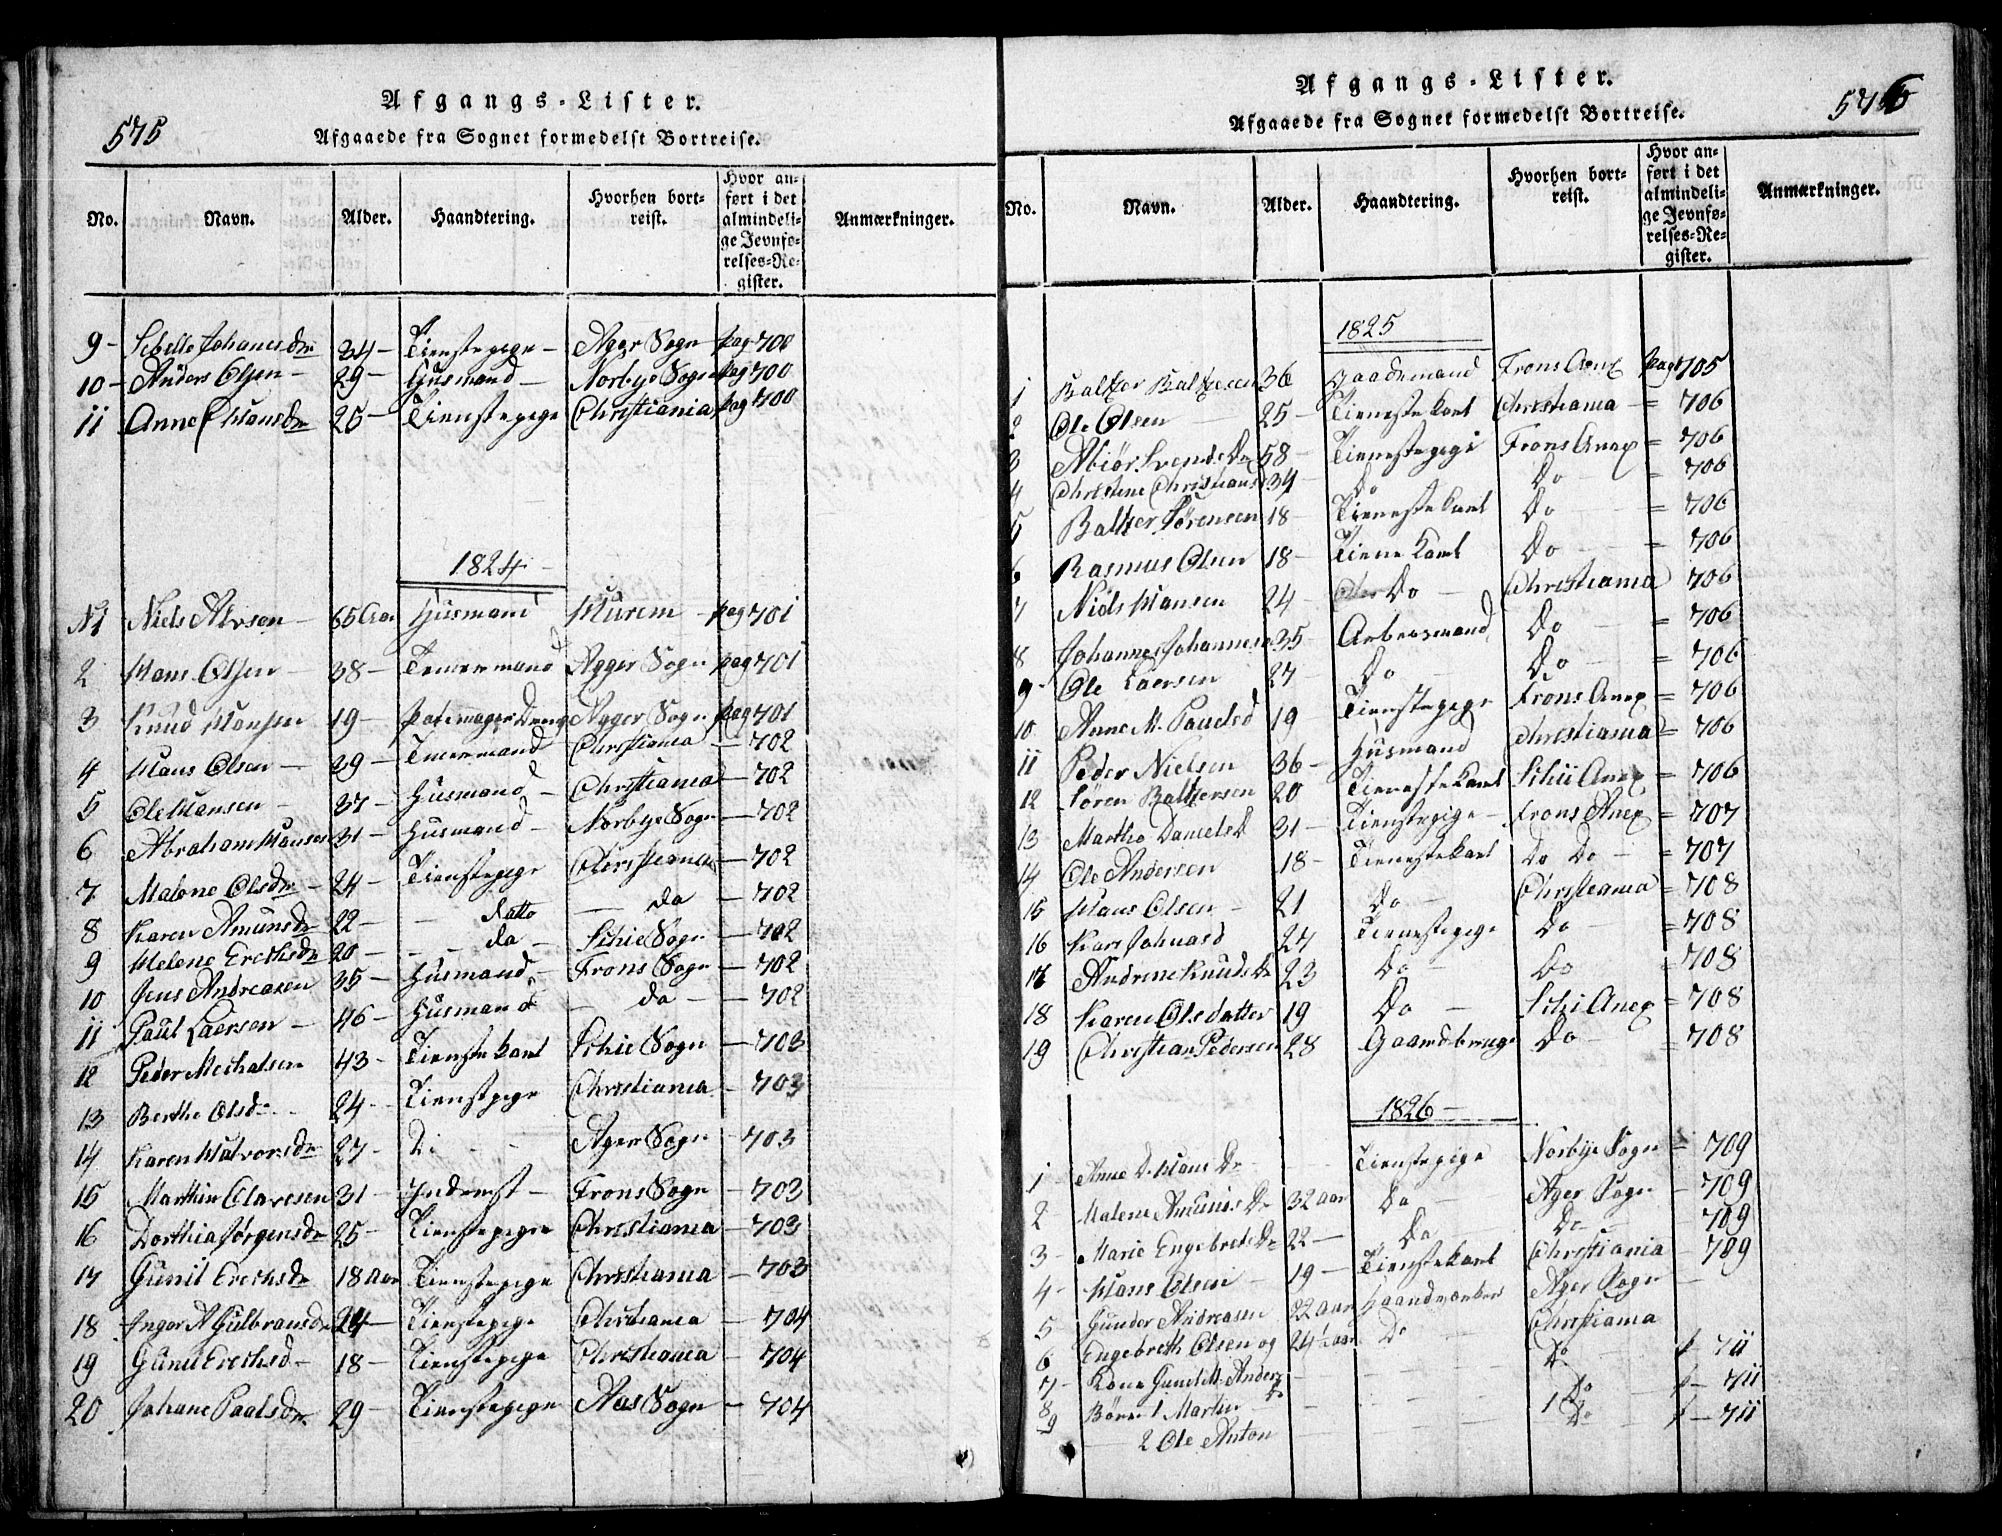 575
Afgangs-Lister.
Afgaaede fra Sognet formedelst Bortreise.
No. Navn. Alder. Haandtering. Hvorhen bortreist. Hvor anført i det almindelige Jevnførelses-Register. Anmærkninger.
9 - Sibelle Johanesdr 34 - Tienstepige - Ager Sogn pag 700
10 - Anders Olsen - 29 - Huusmand - Norbye Sogn pag 700
11 Anne Hansdr 25 - Tienstepige Christiania pag 700
1824 -
No 1 Niels Alvsen - 65 Aar Huusmand pag 701
2 Hans Olsen - 38 - Temermand Agger Sogn pag 701
3 Knud Hansen 19 - Agger Sogn pag 701
4 Hans Olsen - 29 - Temermand Christiania - 702
5 Ole Hansen - 37 - Huusmand - Christiania - 702
6 Abraham Hansen 31 - Huusmand - Norbye Sogn - 702
7 Malene Olsdr - 24 - Tienstepige Christiania - 702
8 Karen Amunsdr 22 - - datto - da - 702
9 Helene Erechsdr 20 - - da - Schie Sogn - 702
10 Jens Andreasen 35 - Huusmand - Frons Sogn - 702
11 Paul Laersen - 46 - Huusmand - da - - 702
12 Peder Mechalsen 43 - Tienstekarl Schie Sogn - 703
13 Berthe Olsd - 24 - Tienstpige Christiania - 703
14 Karen Halvorsdr 27 - Do - Ager Sogn - 703
15 Marthin Olavesen 31 - Inderst - Frons Sogn - 703
16 Dorthia Jørgensdr 25 - Tienstepige Christiania - 703
17 Gunil Erechsdr 18 aar Tienstepige Christiania - 703
18 Inger A Gulbransdr 24 - Tienstepige Christiania - 704
19 Gunil Erechsd - 18 - Tienstepige Christiania - 704
20 Johane Paalsdr 29 - Tienstepige Aas Sogn - 704
576
Afgangs-Lister.
Afgaaede fra Sognet formedelst Bortreise.
No. Navn. Alder. Haandtering. Hvorhen bortreist. Hvor anført i det almindelige Jevnførelses-Register. Anmærkninger.
1825
1 Baltzer Baltzersen 36 Gaardemand Frons Anex pag 705
2 Ole Olsen 25 - Tienestekarl Christiania - = 706
3 Svends Dr 58 - Tienestepige Frons Anex = 706
4 Christine Christians 34 - Do Do - = 706
5 Baltzer Sørensen 18 - Tienestekarl Do - = 706
6 Rasmus Olsen 18 - Tiene Karl Do - = 706
7 Niels Hansen 24 - Do - Christiania 706
8 Johannes Johannesen 35 Arbeismand Do - = 706
9 - Ole Laersen 27 - Do - Do - = 706
10 Anne M. Paulsd 19 Tienstepige Frons Anex = 706
11 Peder Nielsen 36 - Huusmand Christiania = 706
12 Søren Baltzersen 20 Tienestekarl Schii Anex = 706
13 Marthe Daniels D 31 - Tienstepige - Frons Anex = 707
14 Ole Andersen 18 - Tienestekarl Do Do - = 707
15 Hans Olsen - 21 Do - Christiania = 708
16 Kari Johnasd 27 Tienestepige Do - = 708
17 Andrine Knuds Dr 23 Do - Do = 708
18 Karen Olsdatter 19 Do - Schi Anex = 708
19 Christian Pedersen 28 Gaardbruger Do - = 708
1826 -
1 Anne D. Hans Dr - Tienstepige Norbye Sogn = 709
2 Malene Amunds Dr 32 aar Do - Ager Sogn - 709
3 - Marie Engebrets Dr 22 - Do Do - 709
4 - Hans Olsen - 19 - Tienstekarl Christiania - 709
5 Gunder Andreasen 22 aar Haandværker Ager Sogn -
6 Engebreth Olsen og 24½ aar Do - Christiania
7 - Kone Gunil M. Anders Dr - Do - 711
8 Børn 1 Martin - Do - 711
9 2 Ole Anton Do - 711